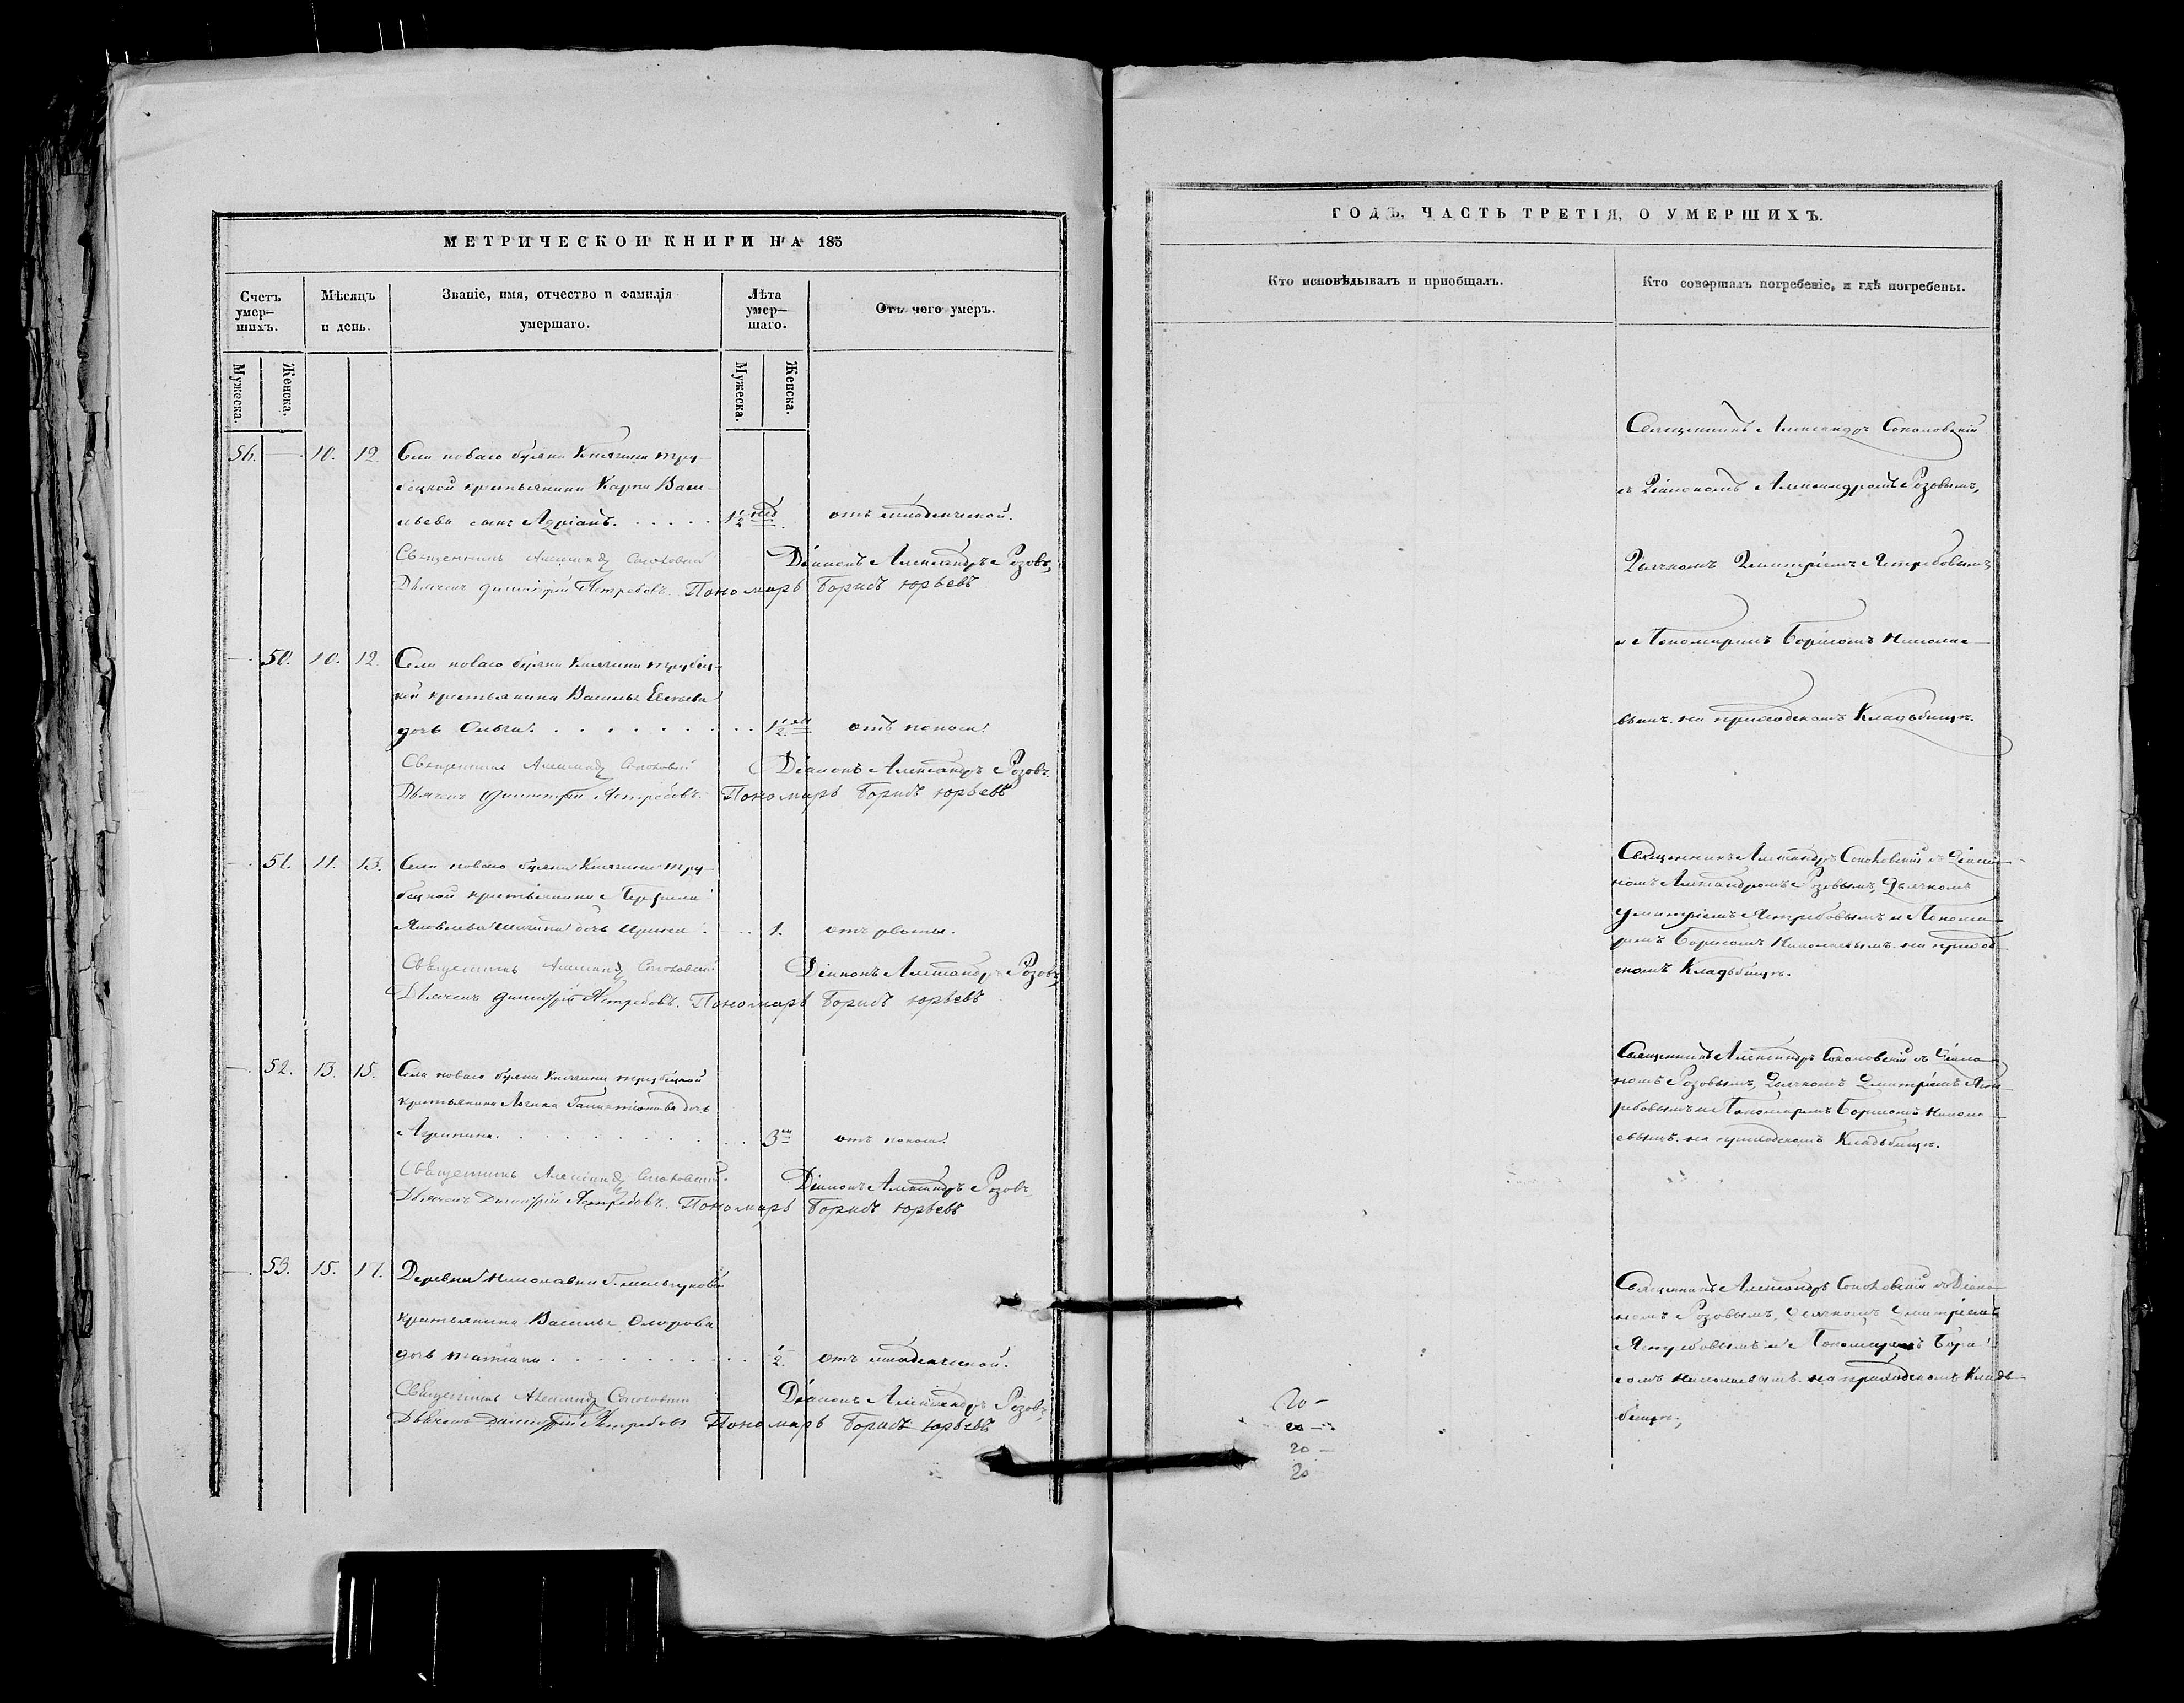 МЕТРИЧЕСКОЙ КНИГИ НА 185
Счетъ умер-шихъ.
Мѣсяцъ и день.
Званіе, имя, отчество и фамилія умершаго.
Лѣта умер-шаго.
Отъ чего умеръ.
Мужеска.
Женска.
Мужеска.
Женска.
56. — 10. 12. Села новаго буяна Княгини Тру-
бецкой крестьянина Карпа Васи-
льева сынъ Адріанъ. 1½ нед отъ младенческой.
Священникъ Александръ Соколовскій Діаконъ Александръ Розовъ,
Дьячекъ Димитрій Ястребовъ. Пономарь Борисъ Юрьевъ
— 50. 10. 12. Села новаго буяна Княгини Трубец-
кой крестьянина Василья
дочь Ольга. 1½ отъ поноса.
Священникъ Александръ Соколовскій Діаконъ Александръ Розовъ.
Дьячекъ Димитрій Ястребовъ. Пономарь Борисъ Юрьевъ
— 51. 11. 13. Села новаго буяна Княгини Тру-
бецкой крестьянина
Яковлева дочь Ирина. 1. отъ рвоты.
Священникъ Александръ Соколовскій Діаконъ Александръ Розовъ,
Дьячекъ Димитрій Ястребовъ. Пономарь Борисъ Юрьевъ
— 52. 13. 15. Села новаго буяна Княгини Трубецкой
крестьянина Логина Галактіонова дочь
Агрипина. 3 отъ поноса.
Священникъ Александръ Соколовскій. Діаконъ Александръ Розовъ
Дьячекъ Димитрій Ястребовъ. Пономарь Борисъ Юрьевъ
— 53. 15. 17. Деревни Николаевки
крестьянина Василья
дочь Татіана. ½. отъ младенческой.
Священникъ Александръ Соколовскій Діаконъ Александръ Розовъ,
Дьячекъ Димитрій Ястребовъ Пономарь Борисъ Юрьевъ
ГОДЪ, ЧАСТЬ ТРЕТІЯ, О УМЕРШИХЪ.
Кто исповѣдывалъ и пріобщалъ.
Кто совершалъ погребеніе, и гдѣ погребены.
Священникъ Александръ Соколовскій
съ Діакономъ Александромъ Розовымъ,
Дьячкомъ Димитріемъ Ястребовымъ
и Пономаремъ Борисомъ Николае-
вымъ. на приходскомъ Кладьбищѣ.
Священникъ Александръ Соколовскій съ Діако-
номъ Александромъ Розовымъ, Дьячкомъ
Димитріемъ Ястребовымъ и Понома-
ремъ Борисомъ Николаевымъ. на приход-
скомъ Кладьбищѣ.
Священникъ Александръ Соколовскій съ Діако-
номъ Розовымъ, Дьячкомъ Димитріемъ Яст-
ребовымъ и Пономаремъ Борисомъ Никола-
евымъ. на приходскомъ Кладьбищѣ.
Священникъ Александръ Соколовскій съ Діако-
номъ Розовымъ, Дьячкомъ Димитріемъ
Ястребовымъ и Пономаремъ Бори-
сомъ Николаевымъ. на приходскомъ Кладь-
бищѣ,
20 -
20 -
20 -
20